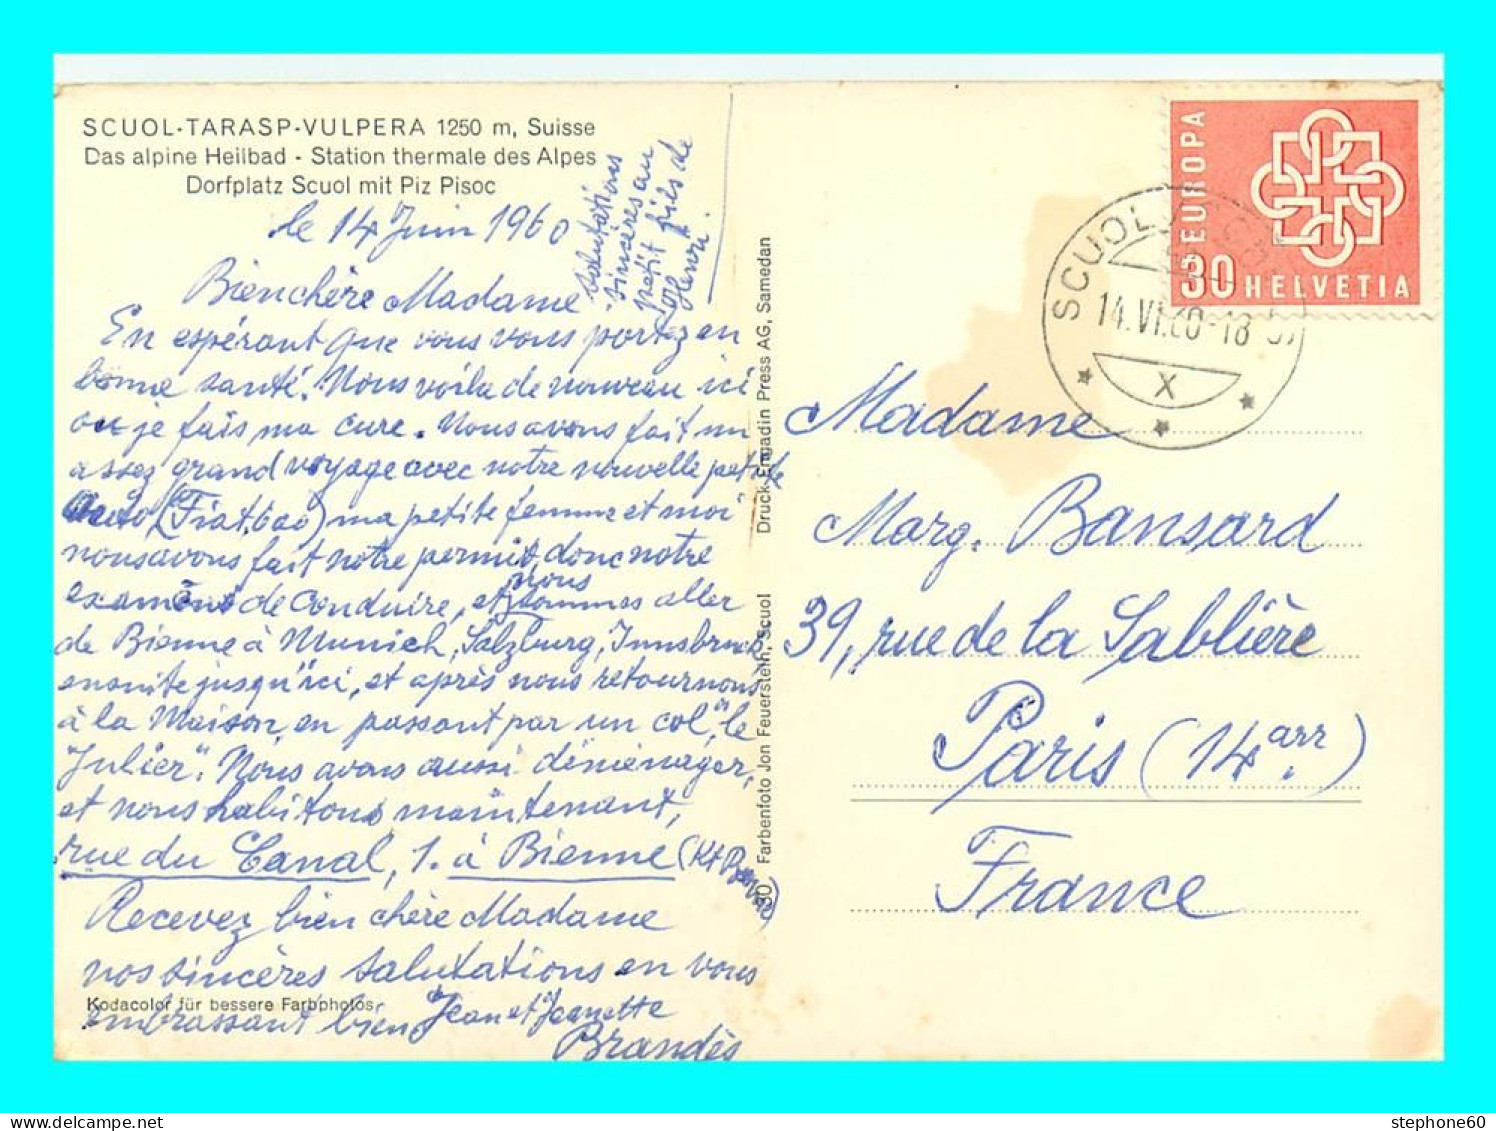 SCUOL-TARASP-VULPERA 1250 m, Suisse
Das alpine Heilbad - Station thermale des Alpes
Dorfplatz Scuol mit Piz Pisoc
le 14 Juin 1960
Bien chère Madame
En espérant que vous vous portez en
bonne santé. Nous voilà de nouveau ici
ou je fais ma cure. Nous avons fait un
assez grand voyage avec notre nouvelle petite
Auto, (Fiat.600) ma petite femme et moi
nous avons fait notre permis, donc notre
examens de conduire, et nous sommes aller
de Bienne à Munich, Salzburg, Innsbruck
ensuite jusqu'ici, et après nous retournons
à la Maison, en passant par un col, "le
Julier". Nous avons aussi déménager,
et nous habitons maintenant,
rue du Canal, 1. à Bienne (Kt Berne)
Recevez bien chère Madame
nos sincères salutations en vous
embrassant bien, Jean et Jeanette
Brandès
Kodacolor für bessere Farbphotos
salutations
sincères au
petit fils de
Henri.
Druck: Engadin Press AG, Samedan
Farbenfoto Jon Feuerstein, Scuol
EUROPA
30 HELVETIA
SCUOL
14.VI.60-18
X
Madame
Marg. Bansard
39, rue de la Sablière
Paris (14arr.)
France
stephone60